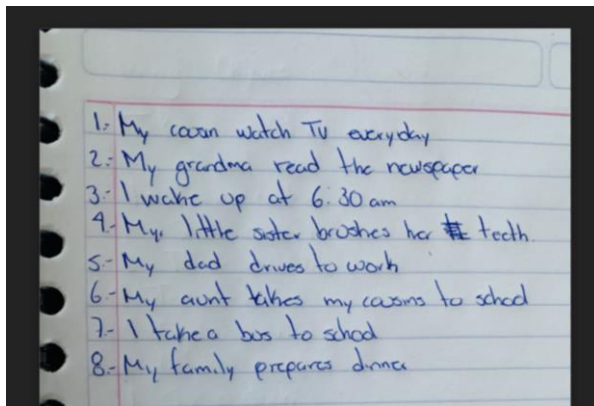 1.- My cousin watch TV everyday
2.- My grandma read the newspaper
3.- I wake up at 6:30 am
4.- My, little sister brushes her teeth.
5.- My dad drives to work
6.- My aunt takes my cousins to school
7.- I take a bus to school
8.- My family prepares dinner